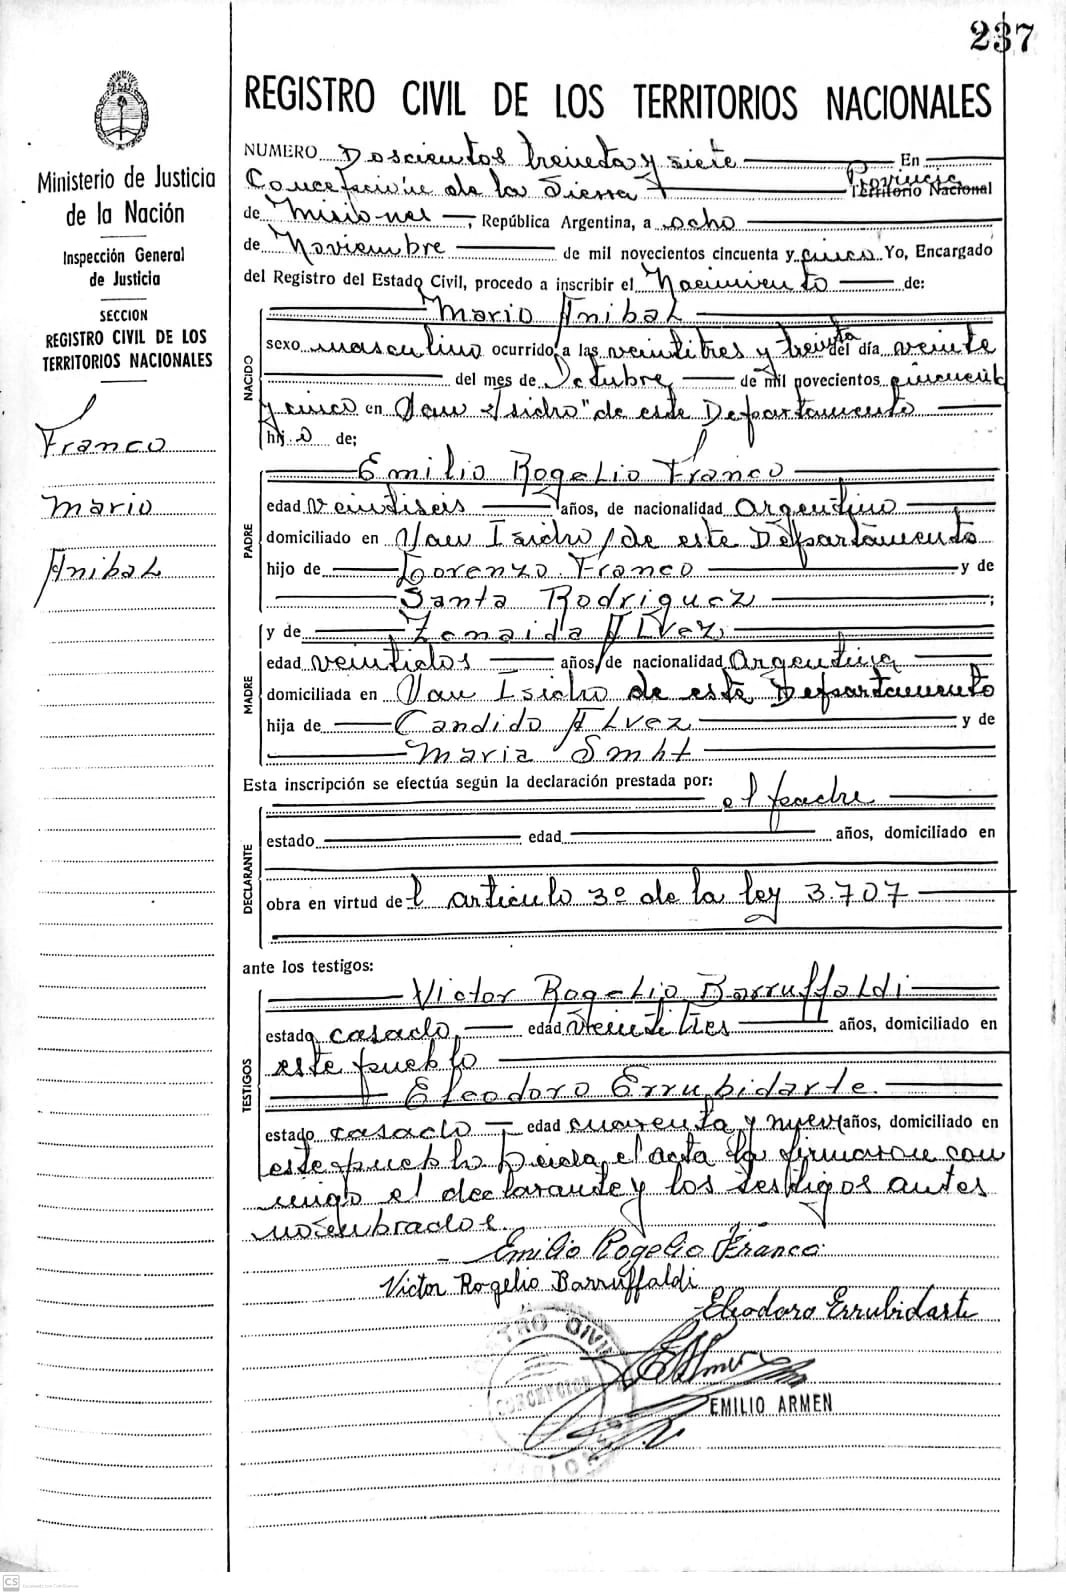 237
Ministerio de Justicia
de la Nación
Inspección General
de Justicia
SECCION
REGISTRO CIVIL DE LOS
TERRITORIOS NACIONALES
Franco
Mario
Anibal
REGISTRO CIVIL DE LOS TERRITORIOS NACIONALES
NUMERO Doscientos treinta y siete En
Concepción de la Sierra Provincia Territorio Nacional
de Misiones, República Argentina, a ocho
de Noviembre de mil novecientos cincuenta y cinco Yo, Encargado
del Registro del Estado Civil, procedo a inscribir el Nacimiento de:
NACIDO
Mario Anibal
sexo masculino ocurrido a las veintitres y treinta del día veinte
del mes de Octubre de mil novecientos cincuenta
y cinco en San Isidro" de este Departamento
hijo de;
PADRE
Emilio Rogelio Franco
edad veintiseis años, de nacionalidad Argentino
domiciliado en San Isidro, de este Departamento
hijo de Lorenzo Franco y de
Santa Rodriguez ;
MADRE
y de Zenaida Alvez
edad veintidos años, de nacionalidad Argentina
domiciliada en San Isidro de este Departamento
hija de Candido Alvez y de
Maria Smht
Esta inscripción se efectúa según la declaración prestada por:
el padre
DECLARANTE
estado edad años, domiciliado en
obra en virtud del articulo 3º de la ley 3.707
ante los testigos:
TESTIGOS
Victor Rogelio Barruffaldi
estado casado, edad veintitres años, domiciliado en
este pueblo
Eleodoro Errubidarte
estado casado edad cuarenta y nueve años, domiciliado en
este pueblo Leida el acta la firmaron con
migo el declarante y los testigos antes
nombrados.
Emilio Rogelio Franco
Victor Rogelio Barruffaldi
Eleodoro Errubidarte
CONCEPCION
EMILIO ARMEN
CS